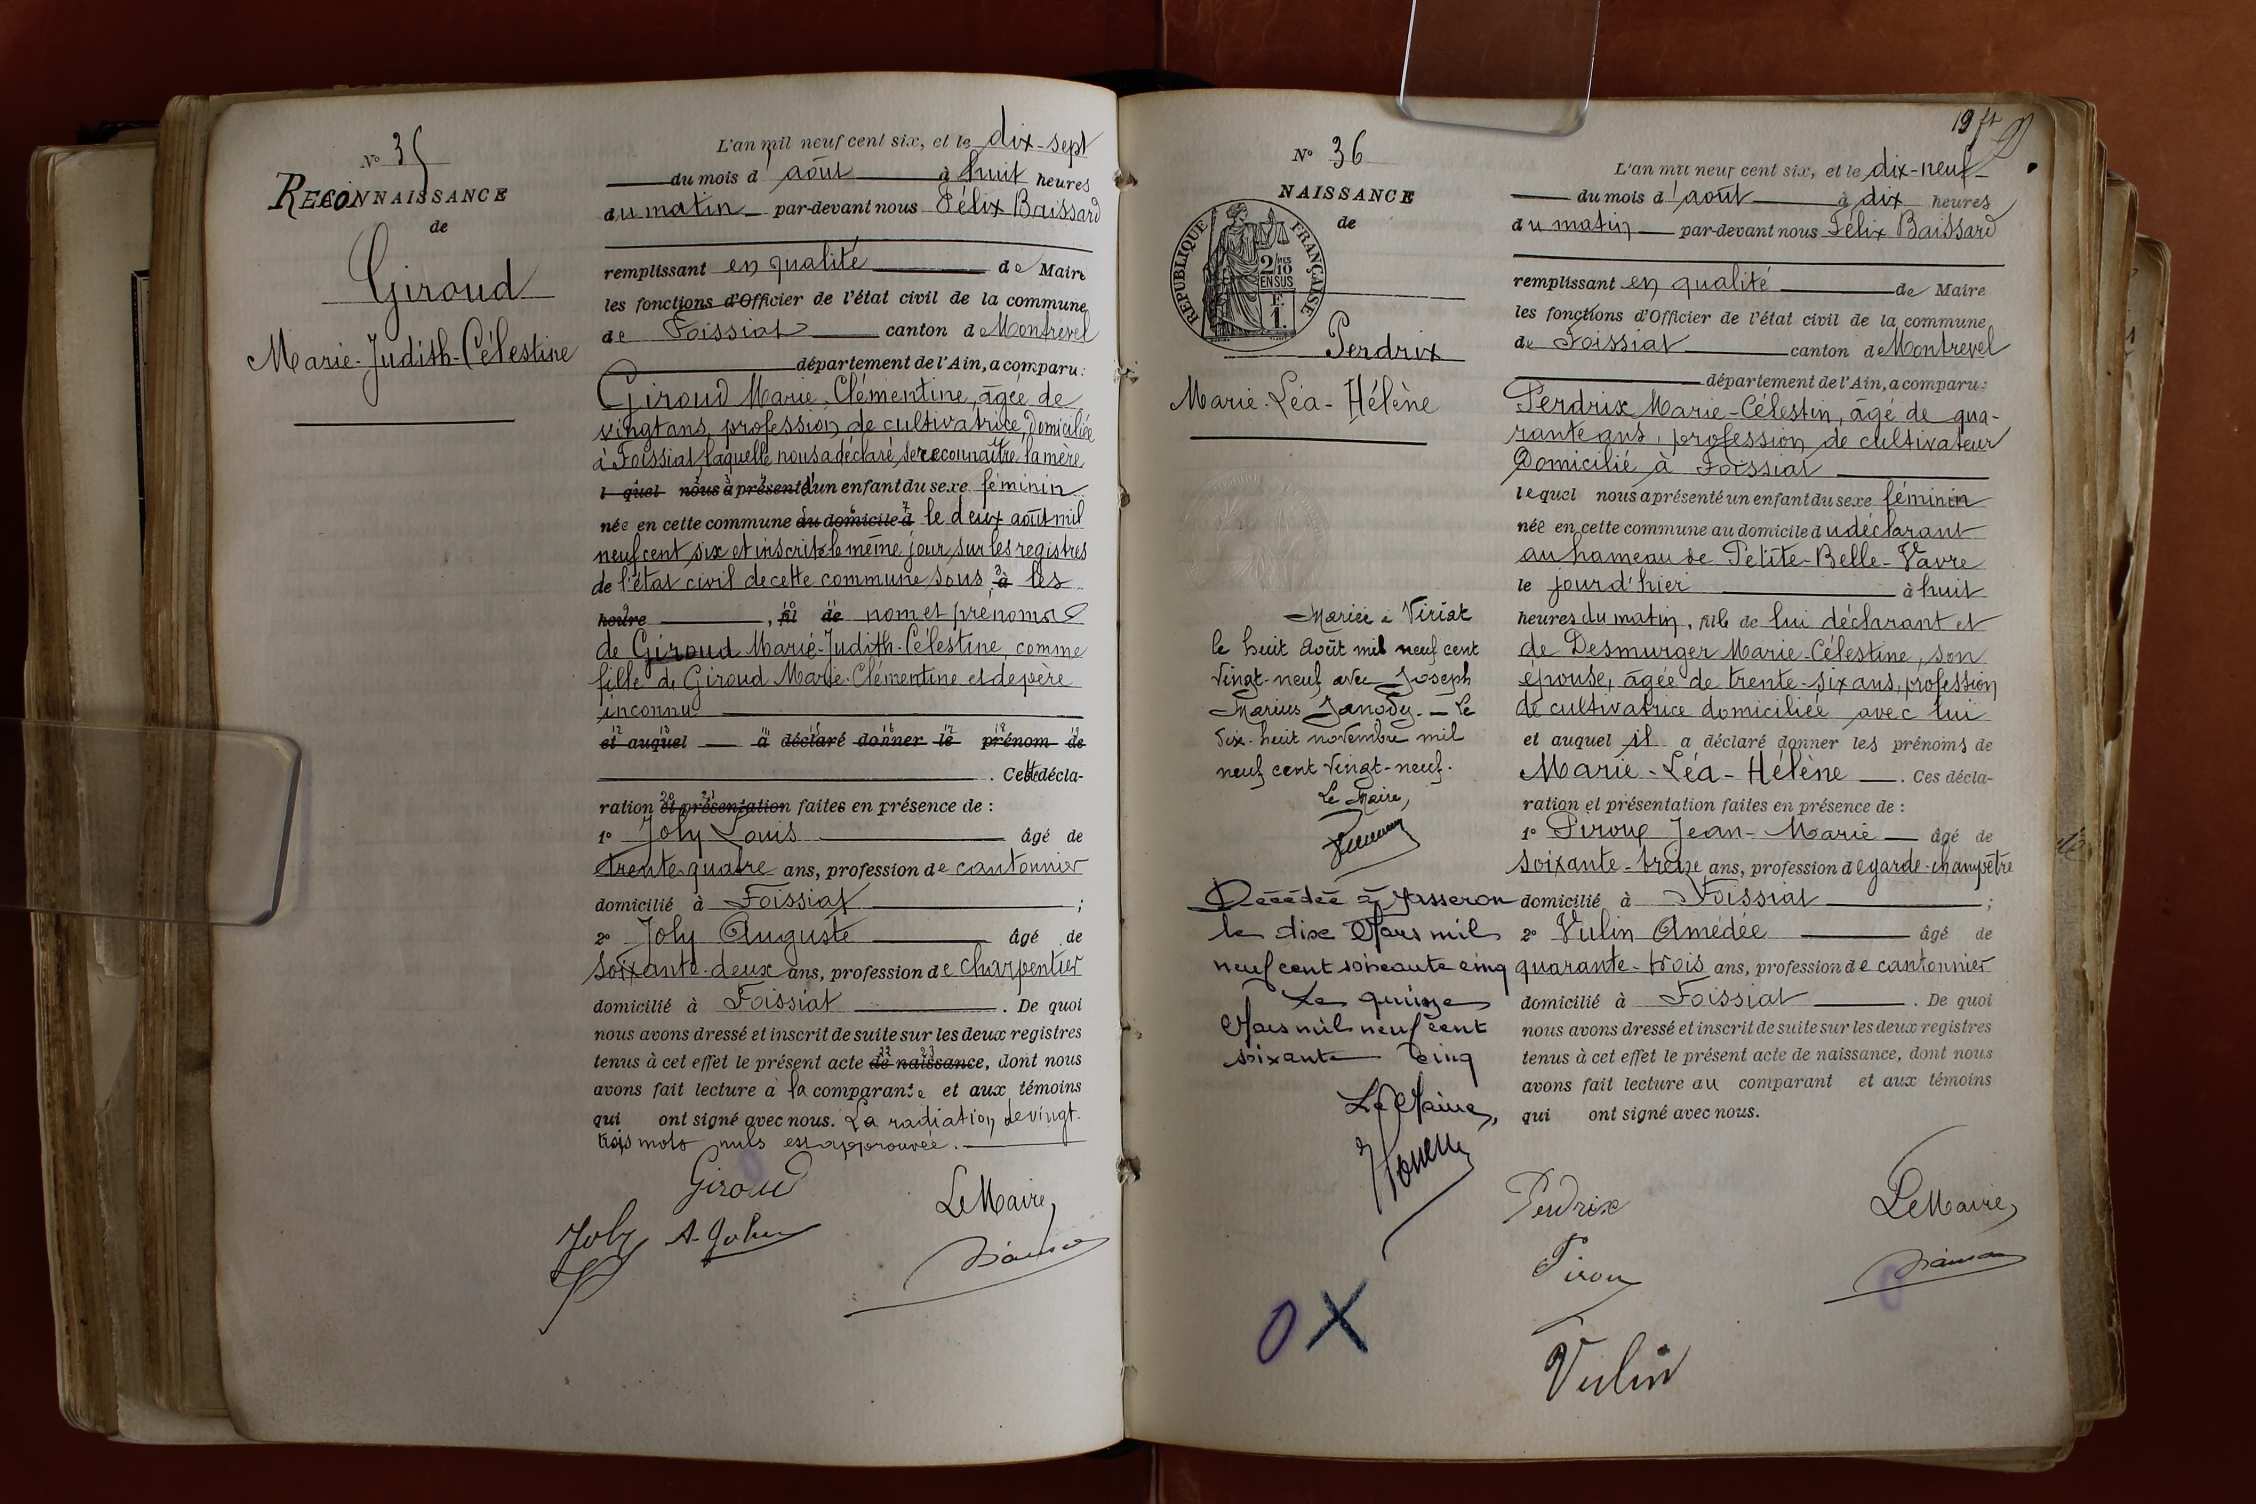 N° 35
RECONNAISSANCE
de
Giroud
Marie-Judith-Célestine
L'an mil neuf cent six, et le dix-sept
du mois d'août à huit heures
du matin par-devant nous Félix Baissard
remplissant en qualité de Maire
les fonctions d'Officier de l'état civil de la commune
de Foissiat canton de Montrevel
département de l'Ain, a comparu:
Giroud Marie-Clémentine, âgée de
vingt ans, profession de cultivatrice, domiciliée
à Foissiat, laquelle nous a déclaré, se reconnaître la mère
l quel nous a présenté d'un enfant du sexe féminin
née en cette commune au domicile d le deux août mil
neuf cent six et inscrit le même jour, sur les registres
de l'état civil de cette commune, sous à les
heure , fil de nom et prénoms
de Giroud Marie-Judith-Célestine, comme
fille de Giroud Marie-Clémentine et de père
inconnu
et auquel a déclaré donner le prénom de
. Cette décla-
ration et présentation faites en présence de :
1° Joly Louis âgé de
trente-quatre ans, profession de cantonnier
domicilié à Foissiat ;
2° Joly Auguste âgé de
soixante-deux ans, profession de charpentier
domicilié à Foissiat . De quoi
nous avons dressé et inscrit de suite sur les deux registres
tenus à cet effet le présent acte de naissance, dont nous
avons fait lecture à la comparante et aux témoins
qui ont signé avec nous. La radiation de vingt-
trois mots nuls est approuvée.
Giroud
Le Maire,
Joly A. Joly
19
N° 36
NAISSANCE
de
REPUBLIQUE FRANÇAISE
2/10 MES
EN SUS
F.
1.
Perdrix
Marie-Léa-Hélène
Mariée à Viriat
le huit Août mil neuf cent
vingt-neuf avec Joseph
Marius Janody. — Le
dix-huit novembre mil
neuf cent vingt-neuf.
Le Maire,
Décédée à Jasseron
le dix Mars mil
neuf cent soixante cinq
Le quinze
Mars mil neuf cent
soixante cinq
Le Maire,
L'an mil neuf cent six, et le dix-neuf
du mois d'août à dix heures
du matin par-devant nous Félix Baissard
remplissant en qualité de Maire
les fonctions d'Officier de l'état civil de la commune
de Foissiat canton de Montrevel
département de l'Ain, a comparu:
Perdrix Marie-Célestin, âgé de qua-
rante ans, profession de cultivateur
Domicilié à Foissiat
lequel nous a présenté un enfant du sexe féminin
née en cette commune au domicile du déclarant
au hameau de Petite-Belle-Vavre
le jour d'hier à huit
heures du matin, fille de lui déclarant et
de Desmurger Marie-Célestine, son
épouse, âgée de trente-six ans, profession
de cultivatrice domiciliée avec lui
et auquel il a déclaré donner les prénoms de
Marie-Léa-Hélène . Ces décla-
ration et présentation faites en présence de :
1° Piroux Jean-Marie âgé de
soixante-treize ans, profession de garde-champêtre
domicilié à Foissiat ;
2° Vulin Amédée âgé de
quarante-trois ans, profession de cantonnier
domicilié à Foissiat . De quoi
nous avons dressé et inscrit de suite sur les deux registres
tenus à cet effet le présent acte de naissance, dont nous
avons fait lecture au comparant et aux témoins
qui ont signé avec nous.
Perdrix
Le Maire,
Pirou
Vulin
0 X